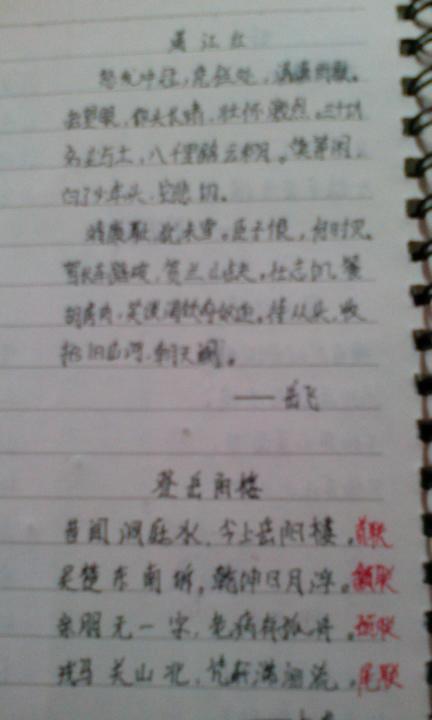 满江红
怒发冲冠，凭栏处，潇潇雨歇。
抬望眼，仰天长啸，壮怀激烈。三十功
名尘与土，八千里路云和月。莫等闲，
白了少年头，空悲切。
靖康耻，犹未雪。臣子恨，何时灭。
驾长车踏破，贺兰山缺。壮志饥餐
胡虏肉，笑谈渴饮匈奴血。待从头，收
拾旧山河，朝天阙。
——岳飞
登岳阳楼
昔闻洞庭水，今上岳阳楼。首联
吴楚东南坼，乾坤日月浮。颔联
亲朋无一字，老病有孤舟。颈联
戎马关山北，凭轩涕泗流。尾联